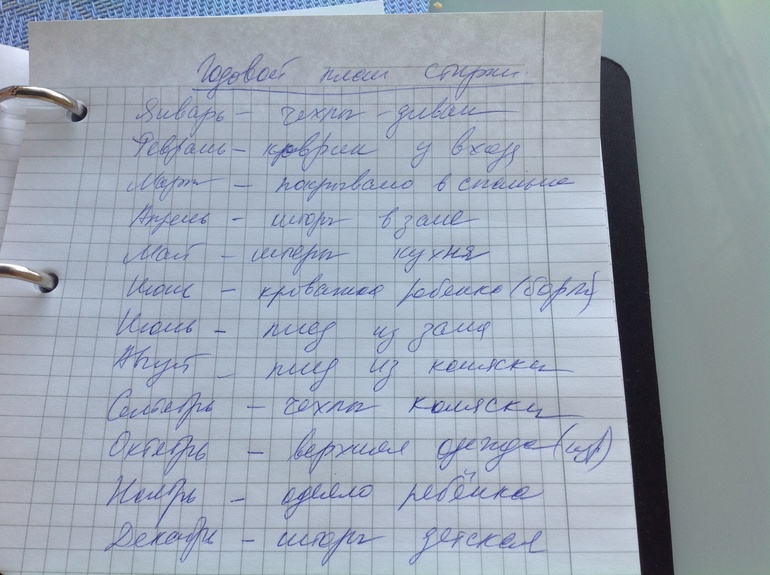 Годовой план стирки
Январь – чехлы - диван
Февраль – коврик у входа
Март – покрывало в спальне
Апрель – шторы в зале
Май – шторы кухня
Июнь – кроватка ребенка (борты)
Июль – плед из зала
Август – плед из коляски
Сентябрь – чехлы коляски
Октябрь – верхняя одежда
Ноябрь – одеяло ребёнка
Декабрь – шторы детская